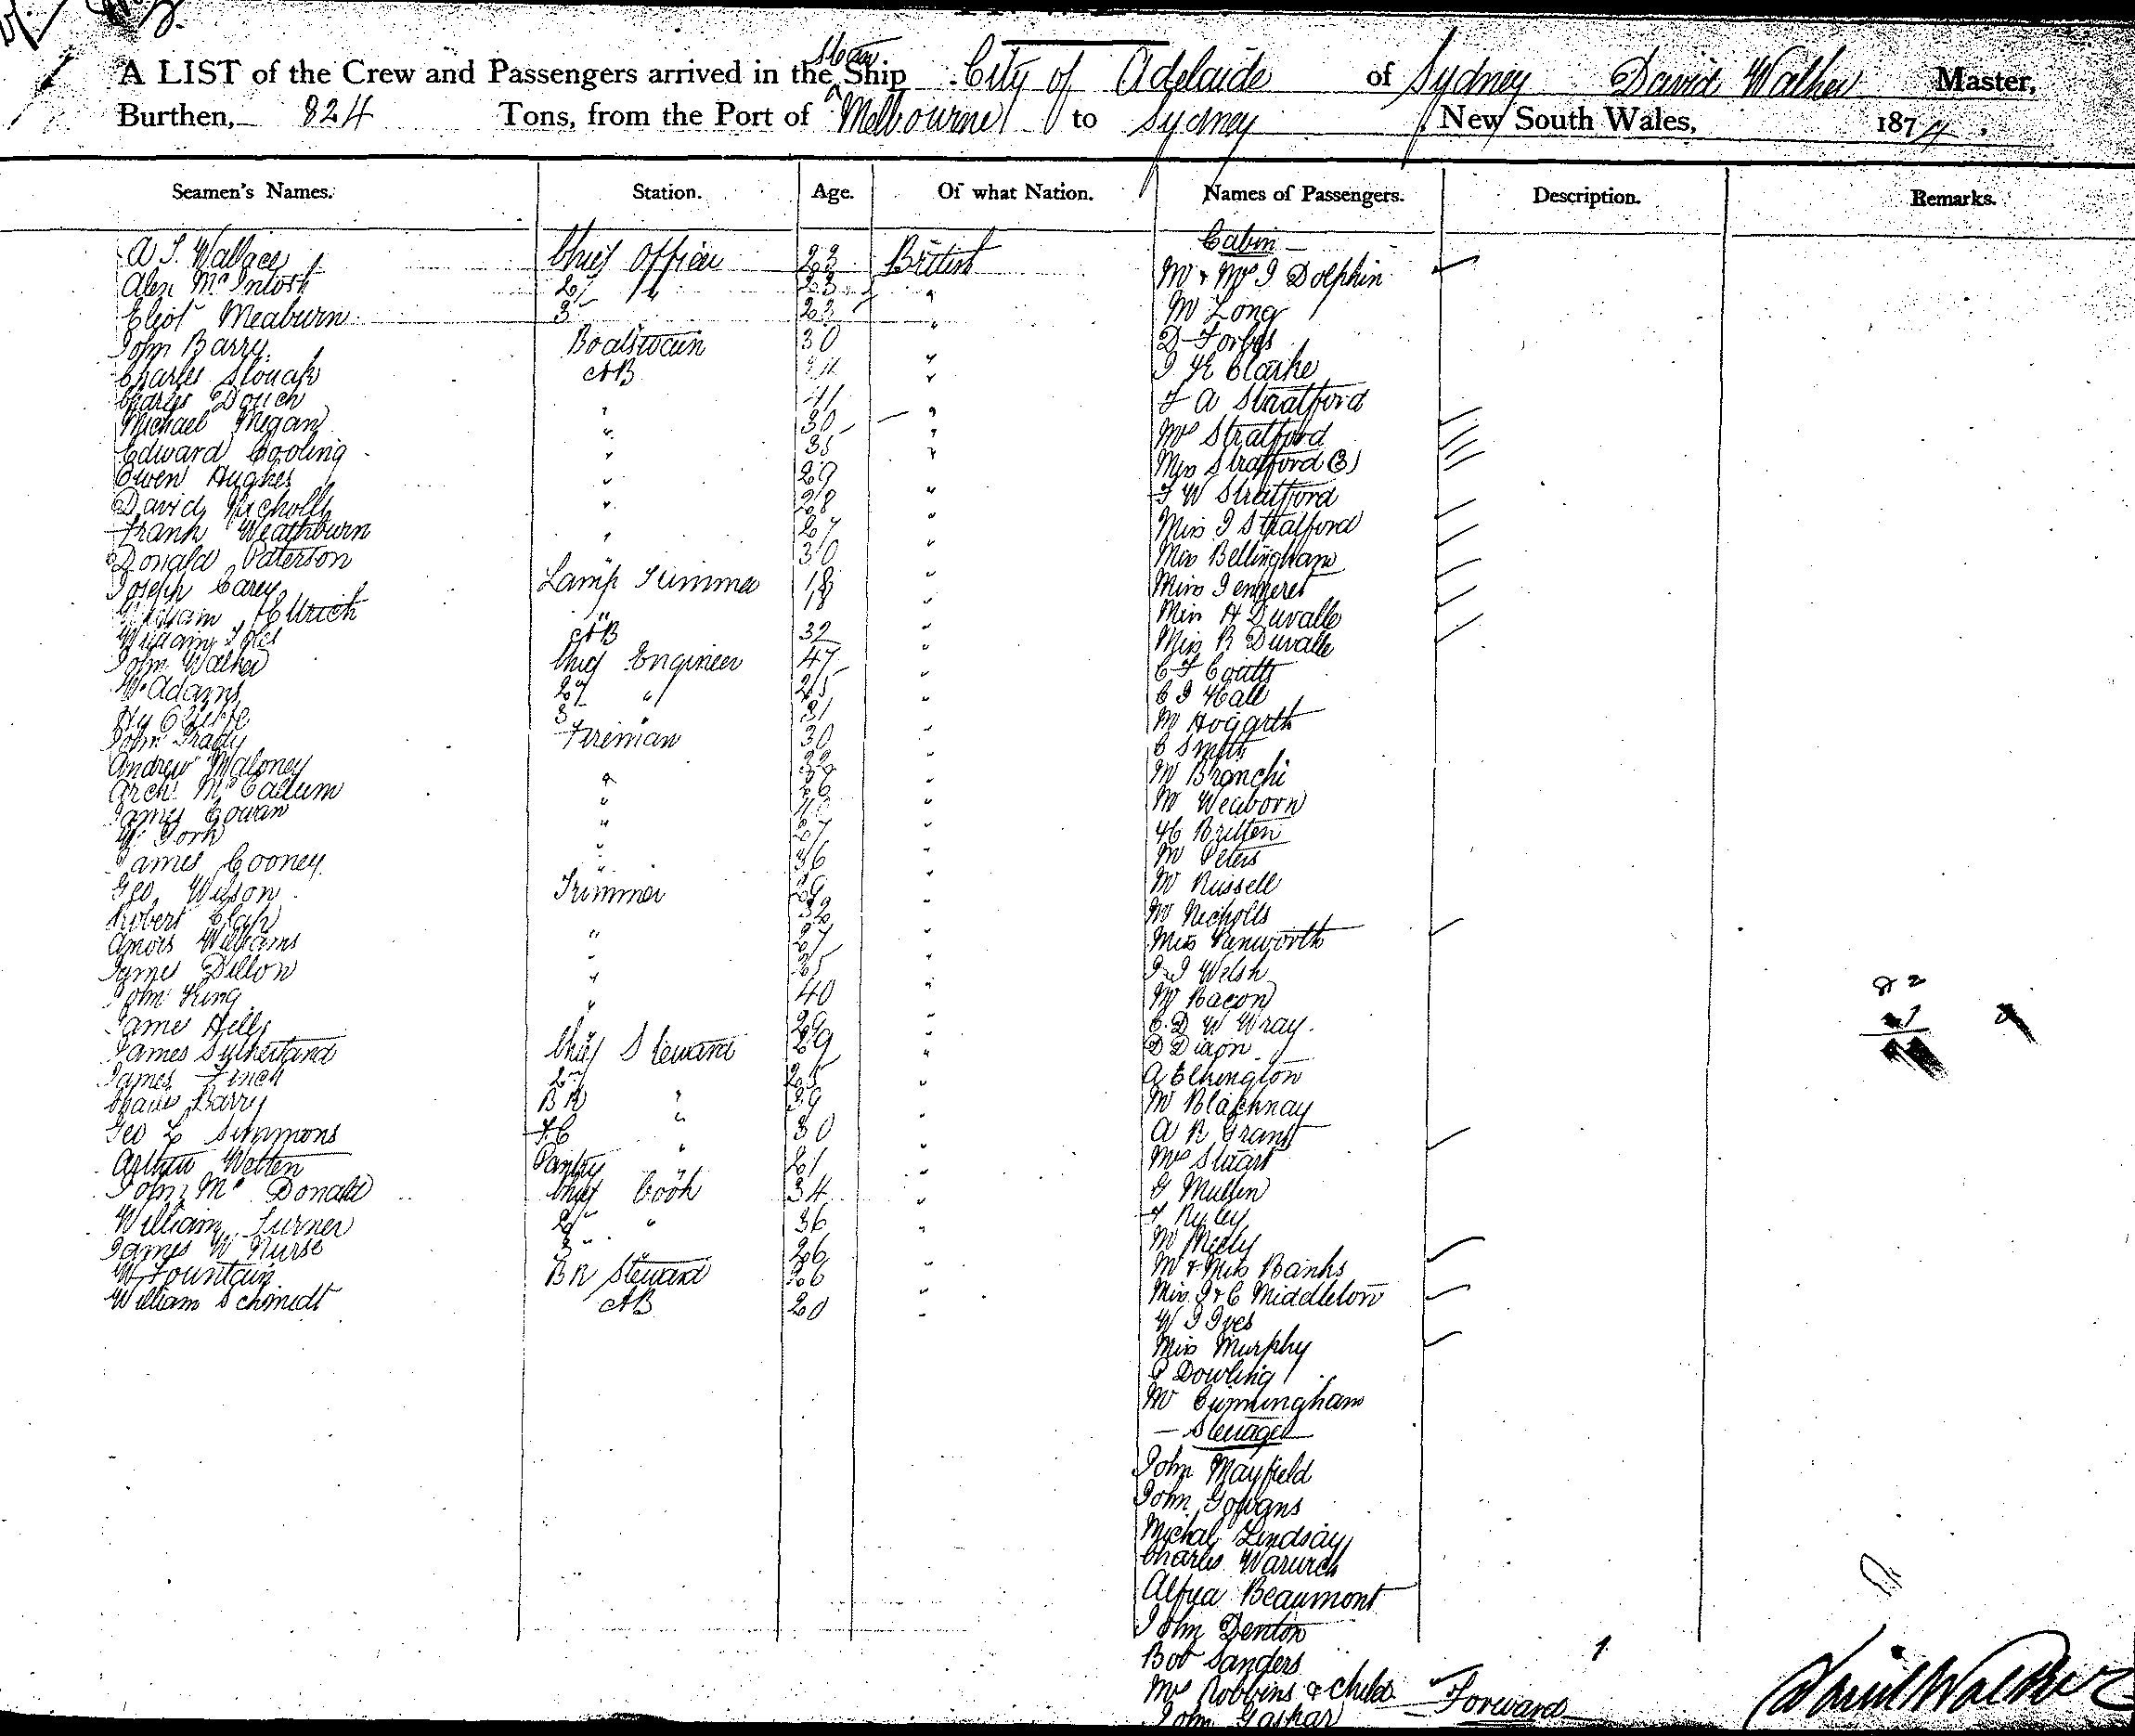 A LIST of the Crew and Passengers arrived in the Steam Ship City of Adelaide of Sydney David Walker Master,
Burthen, 824 Tons, from the Port of Melbourne to Sydney, New South Wales, 1874.
Seamen's Names. Station. Age. Of what Nation. Names of Passengers. Description. Remarks.
Cabin
A S. Wallace Chief Officer 23 British
Mr & Mrs J Dolphin
Alex McIntosh 2nd " 23 "
Mr Long
Eliot Meaburn 3 23 "
D Forbes
John Barry Boatswain 30 "
J H Clarke
Charles AB "
F A Stratford
Charles Douch " 41 "
Mrs Stratford
Michael Megan " 30 "
Miss Stratford (3)
Edward Cooling " 35 "
F W Stratford
Owen Hughes " 29 "
Miss J Stratford
David Nicholls " 28 "
Miss Bellingham
Frank Weathburn " 27 "
Miss
Donald Paterson 30 "
Miss H Duvalle
Joseph Carey Lamp Trimmer 18 "
Miss R Duvalle
William " 18 "
C F Coutts
William AB 32 "
C J Hall
John Walker Chief Engineer 47 "
Mr Hogarth
W. Adams 2nd " 25 "
C Smith
Hy 3 " 31 "
Mr Bianchi
John Grady Fireman 30 "
Mr Weaborn
Andrew Maloney "
H Britten
Arch. McCallum " 26 "
Mr Peters
James Cowan " "
Mr Russell
W. York " 27 "
Mr Nicholls
James Cooney " 36 "
Miss Kenworth
Geo. Wilson Trimmer 29 "
J J Welsh
Robert 32 "
Mr Bacon
Amois Williams " 27 "
C. D W Wray.
James Dillon " 25 "
D Dixon
John King " 40 "
A Elkington
James Hells " 29 "
Mr Blachnay
James Sutherland Chief Steward 29 "
A R Grant
James Finch 2nd " 25 "
Mrs Stuart
Charles Barry B R " 39 "
G Mullen
Geo L Simmons F.C " 30 "
F Ryley
Arthur Wotten Pantry " 21 "
Mr Meely
John McDonald Chief Cook 34 "
Mr & Miss Banks
William Turner 2nd " 36 "
Miss J & C Middleton
James W Nurse 3 " 26
W J Ives
W Fountain B R Steward 26 "
Miss Murphy
William Schmidt AB 20 "
P Dowling
Mr Cunningham
Steerage
John Mayfield
John Gowans
Michal Lindsay
Charles Warwick
Alfred Beaumont
John Denton
Bob Sanders
Mrs Robbins & Child
John Gaskar
Forward
David Walker